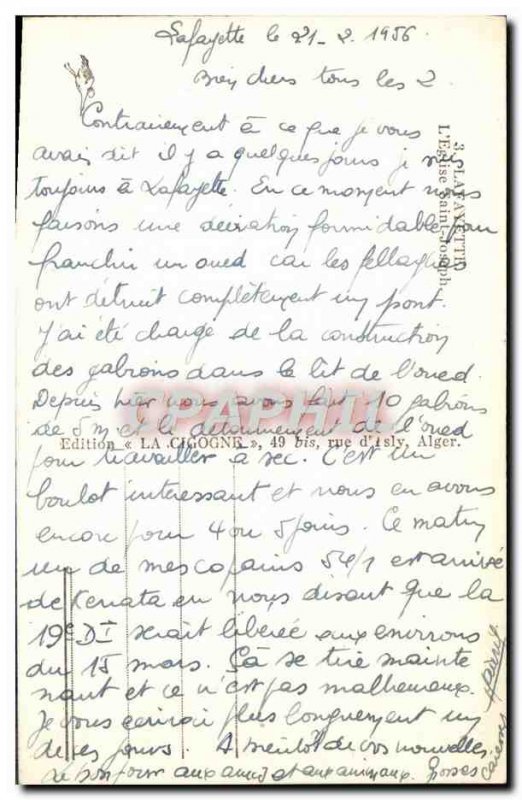 Lafayette le 21-2.1956.
Bien chers tous les 2
Contrairement à ce que je vous
avais dit il y a quelques jours je suis
toujours à Lafayette. En ce moment nous
faisons une déviation formidable pour
franchir un oued car les fellaghas
ont détruit complètement un pont.
J'ai été chargé de la construction
des gabions dans le lit de l'oued.
Depuis hier nous avons fait 10 gabions
de 5 m et le détournement de l'oued
pour travailler à sec. C'est un
boulot intéressant et nous en avons
encore pour 4 ou 5 jours. Ce matin
un de mes copains 54/1 est arrivé
de Kerrata en nous disant que la
19e DI serait libérée aux environs
du 15 mars. Çà se tire mainte
nant et ce n'est pas malheureux.
Je vous écrirai plus longuement un
de ces jours. A bientôt de vos nouvelles
le bonjour aux amis et aux animaux. Grosses
caresses
3. LAFAYETTE
L'Eglise Saint-Joseph.
CPAPHIL
Edition « LA CIGOGNE », 49 bis, rue d'Isly, Alger.